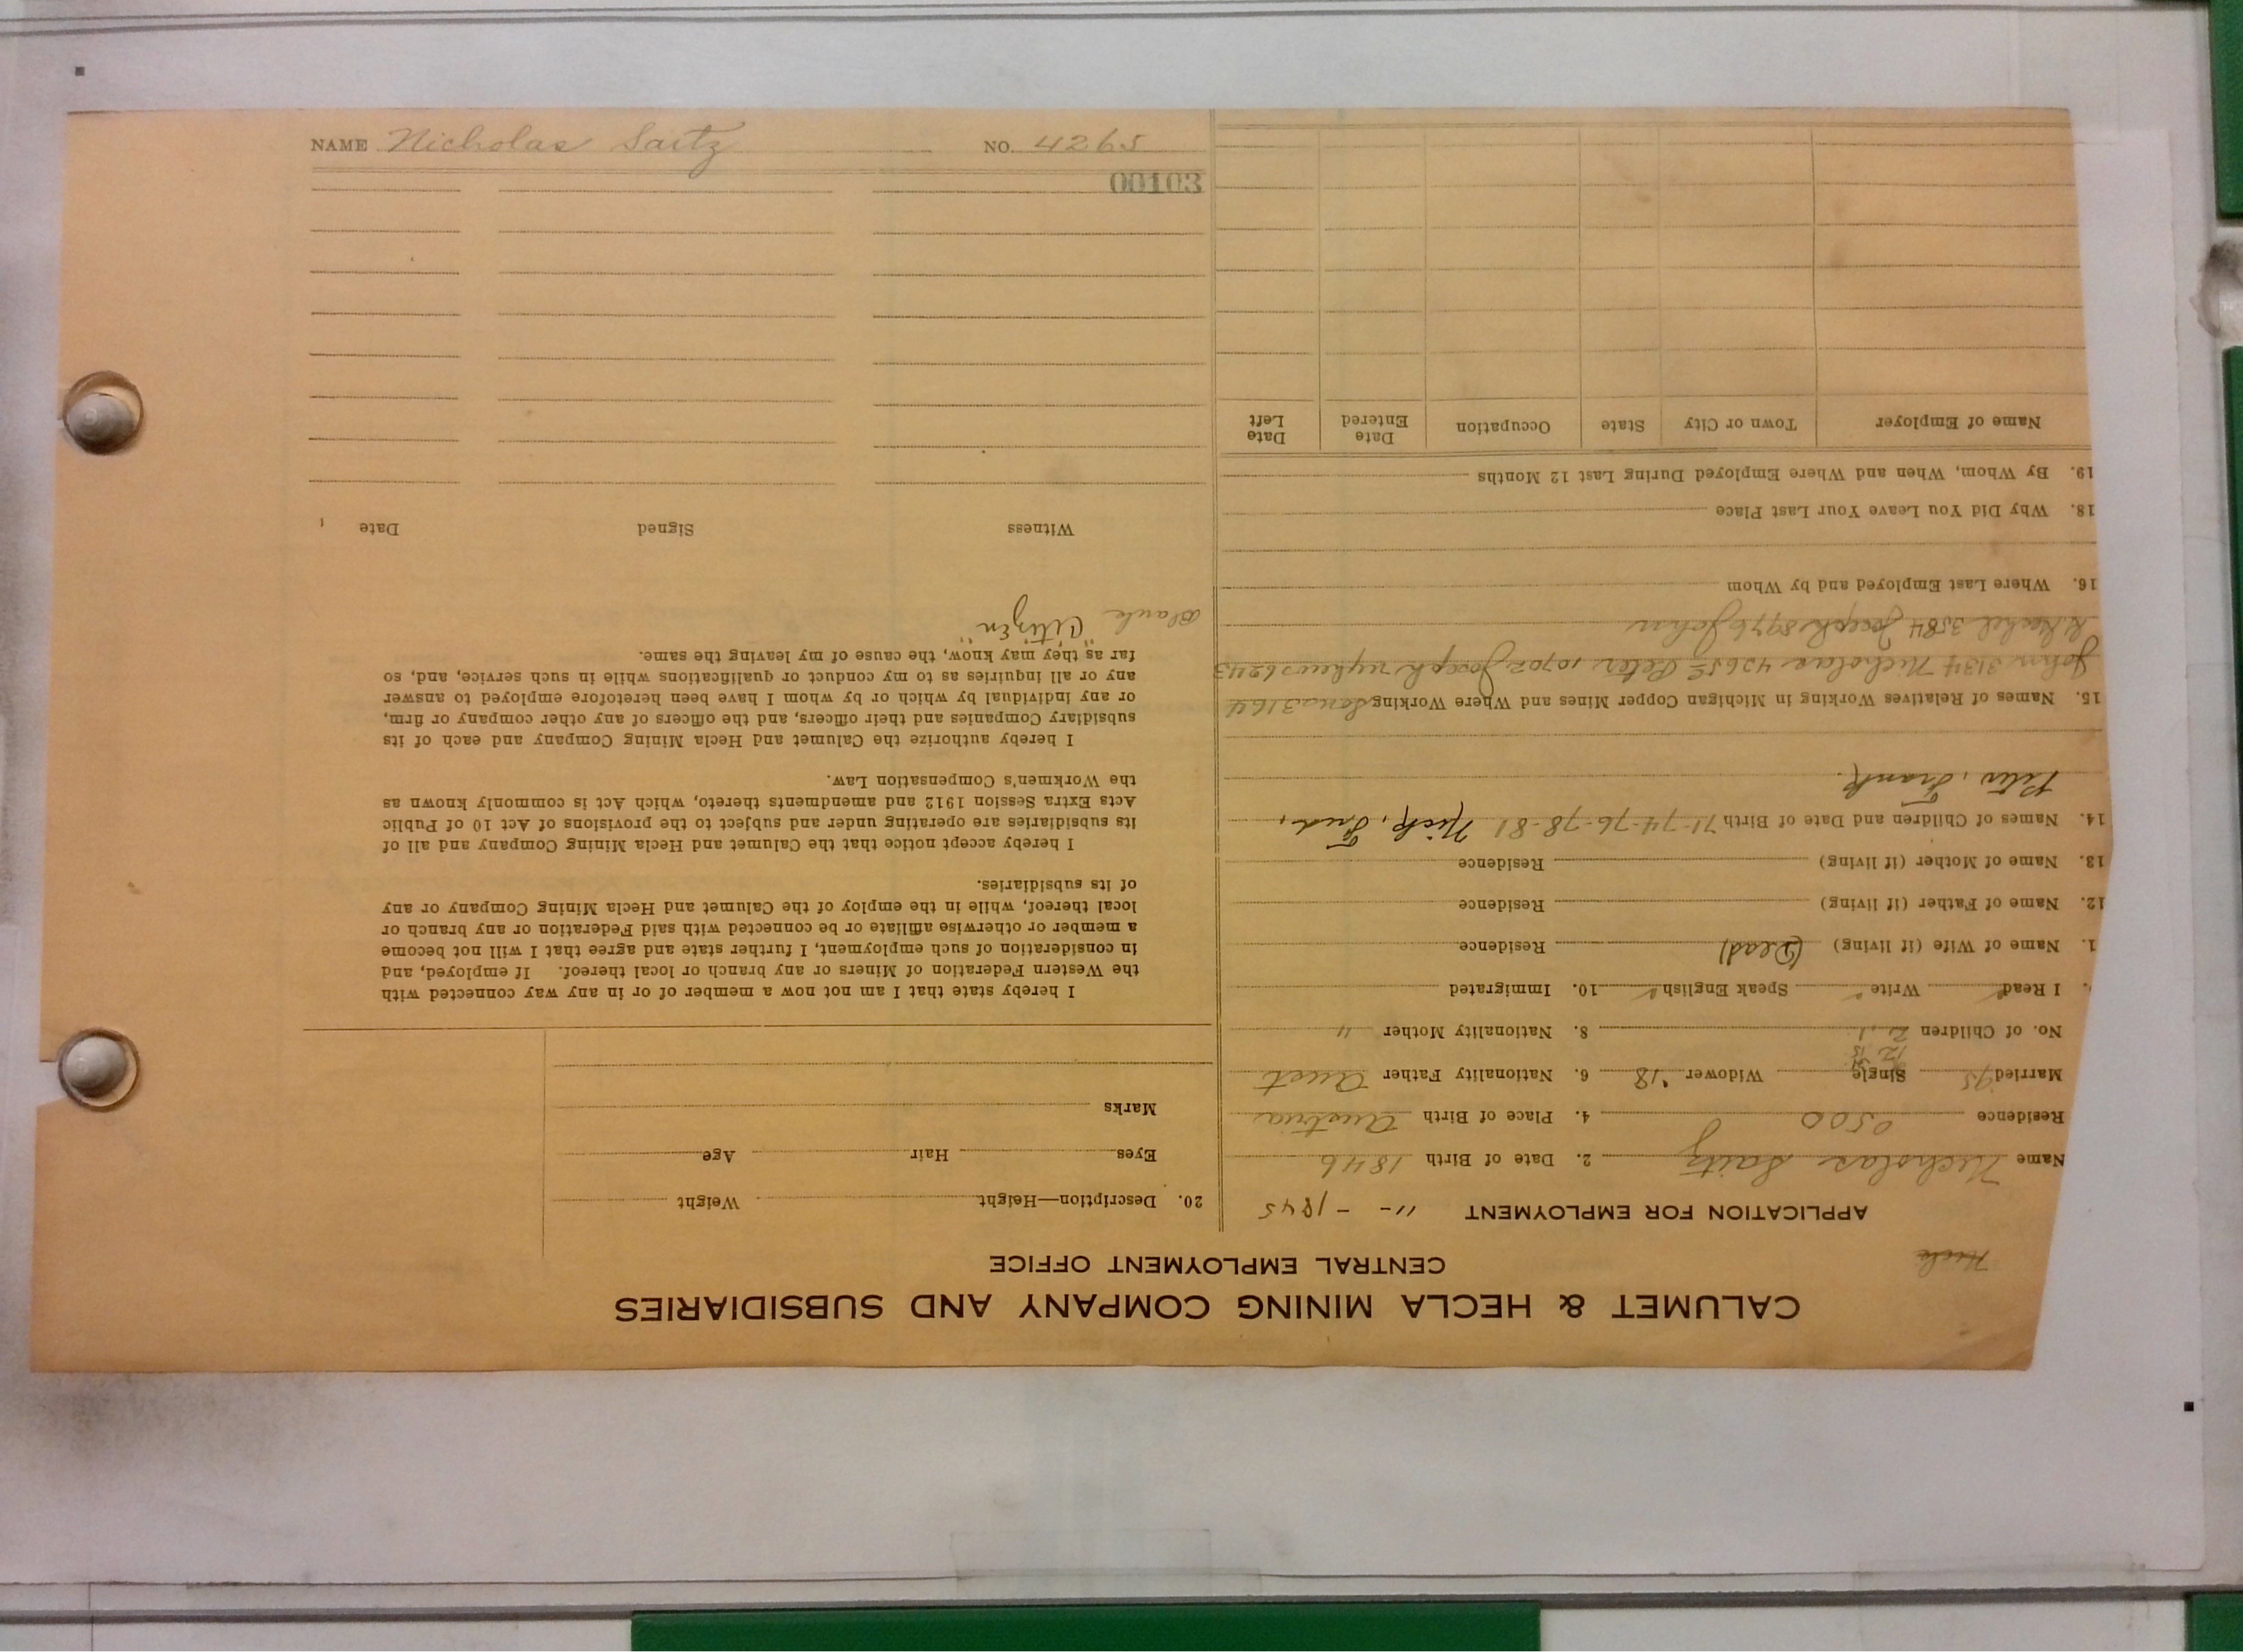 NAME Nicholas Saitz NO. 4265
00103
CALUMET & HECLA MINING COMPANY AND SUBSIDIARIES
CENTRAL EMPLOYMENT OFFICE
APPLICATION FOR EMPLOYMENT 11- - 1845
Name Nicholas Saitz 2. Date of Birth 1846
Residence 0500 4. Place of Birth Austria
Married 95 Single Widower '18 6. Nationality Father Aust
No. of Children 8. Nationality Mother "
I Read Write Speak English 10. Immigrated
1. Name of Wife (if living) (Dead) Residence
12. Name of Father (if living) Residence
13. Name of Mother (if living) Residence
14. Names of Children and Date of Birth 71-74-76-78-81 Nick, Fred,
Peter, Frank.
15. Names of Relatives Working in Michigan Copper Mines and Where Working 3164
John 3134 Nicholas 4265 Peter 10702 Joseph nephew 6243
3584 Joseph 8976 John
16. Where Last Employed and by Whom
18. Why Did You Leave Your Last Place
19. By Whom, When and Where Employed During Last 12 Months
Name of Employer Town or City State Occupation Date Entered Date Left
20. Description—Height Weight
Eyes Hair Age
Marks
I hereby state that I am not now a member of or in any way connected with
the Western Federation of Miners or any branch or local thereof. If employed, and
in consideration of such employment, I further state and agree that I will not become
a member or otherwise affiliate or be connected with said Federation or any branch or
local thereof, while in the employ of the Calumet and Hecla Mining Company or any
of its subsidiaries.
I hereby accept notice that the Calumet and Hecla Mining Company and all of
its subsidiaries are operating under and subject to the provisions of Act 10 of Public
Acts Extra Session 1912 and amendments thereto, which Act is commonly known as
the Workmen's Compensation Law.
I hereby authorize the Calumet and Hecla Mining Company and each of its
subsidiary Companies and their officers, and the officers of any other company or firm,
or any individual by which or by whom I have been heretofore employed to answer
any or all inquiries as to my conduct or qualifications while in such service, and, so
far as they may know, the cause of my leaving the same.
"Citizen"
Witness Signed Date